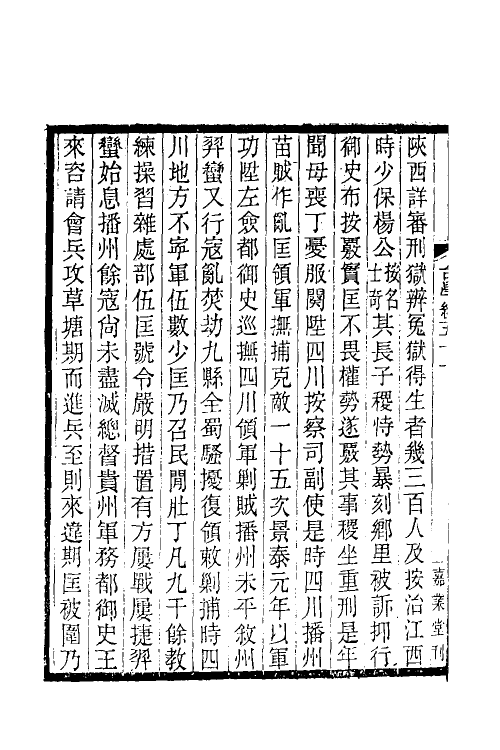 陜西詳審刑獄辨冤獄得生者幾三百人及按治江西
時少保楊公按名士奇其長子稷恃勢暴刻鄉里被訴抑行
御史布按覈實匡不畏權勢遂覈其事稷坐重刑是年
聞母喪丁憂服闋陞四川按察司副使是時四川播州
苗賊作亂匡領軍撫捕克敵一十五次景泰元年以軍
功陞左僉都御史巡撫四川領軍剿賊播州未平敘州
羿蠻又行寇亂焚劫九縣全蜀騷擾復領敕剿捕時四
川地方不寧軍伍數少匡乃召民閒壯丁凡九千餘教
練操習雜處部伍匡號令嚴明措置有方屢戰屢捷羿
蠻始息播州餘寇尙未盡滅總督貴州軍務都御史王
來咨請會兵攻草塘期而進兵至則來違期匡被圍乃
嘉業堂刊